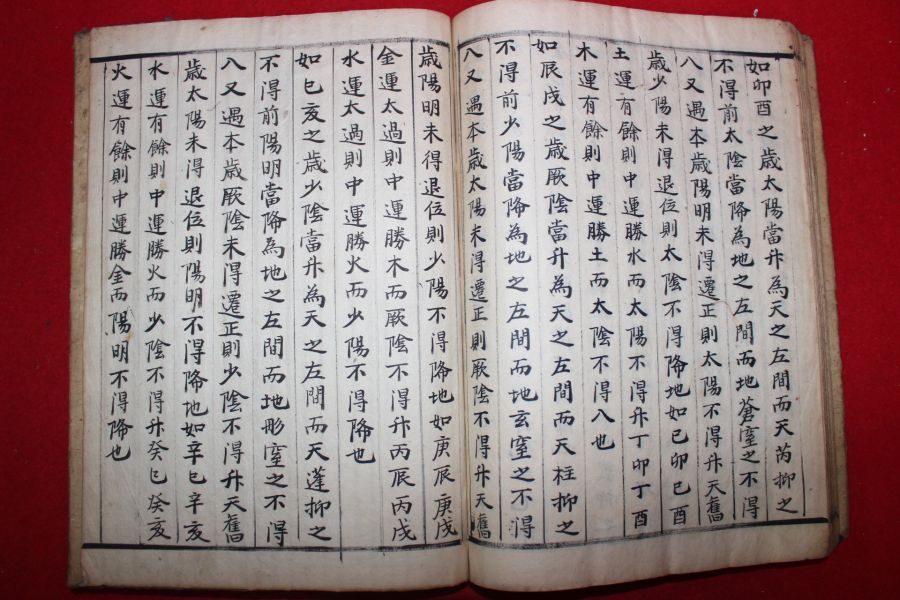 如卯酉之歲太陽當升為天之左間而天芮抑之
不得前太陰當降為地之左間而地蒼窒之不得
入又遇本歲陽明未得遷正則太陽不得升天舊
歲少陽未得退位則太陰不得降地如己卯己酉
土運有餘則中運勝水而太陽不得升丁卯丁酉
木運有餘則中運勝土而太陰不得入也
如辰戌之歲厥陰當升為天之左間而天柱抑之
不得前少陽當降為地之左間而地玄窒之不得
入又遇本歲太陽未得遷正則厥陰不得升天舊
歲陽明未得退位則少陽不得降地如庚辰庚戌
金運太過則中運勝木而厥陰不得升丙辰丙戌
水運太過則中運勝火而少陽不得降也
如巳亥之歲少陰當升為天之左間而天蓬抑之
不得前陽明當降為地之左間而地彤窒之不得
入又遇本歲厥陰未得遷正則少陰不得升天舊
歲太陽未得退位則陽明不得降地如辛巳辛亥
水運有餘則中運勝火而少陰不得升癸巳癸亥
火運有餘則中運勝金而陽明不得降也